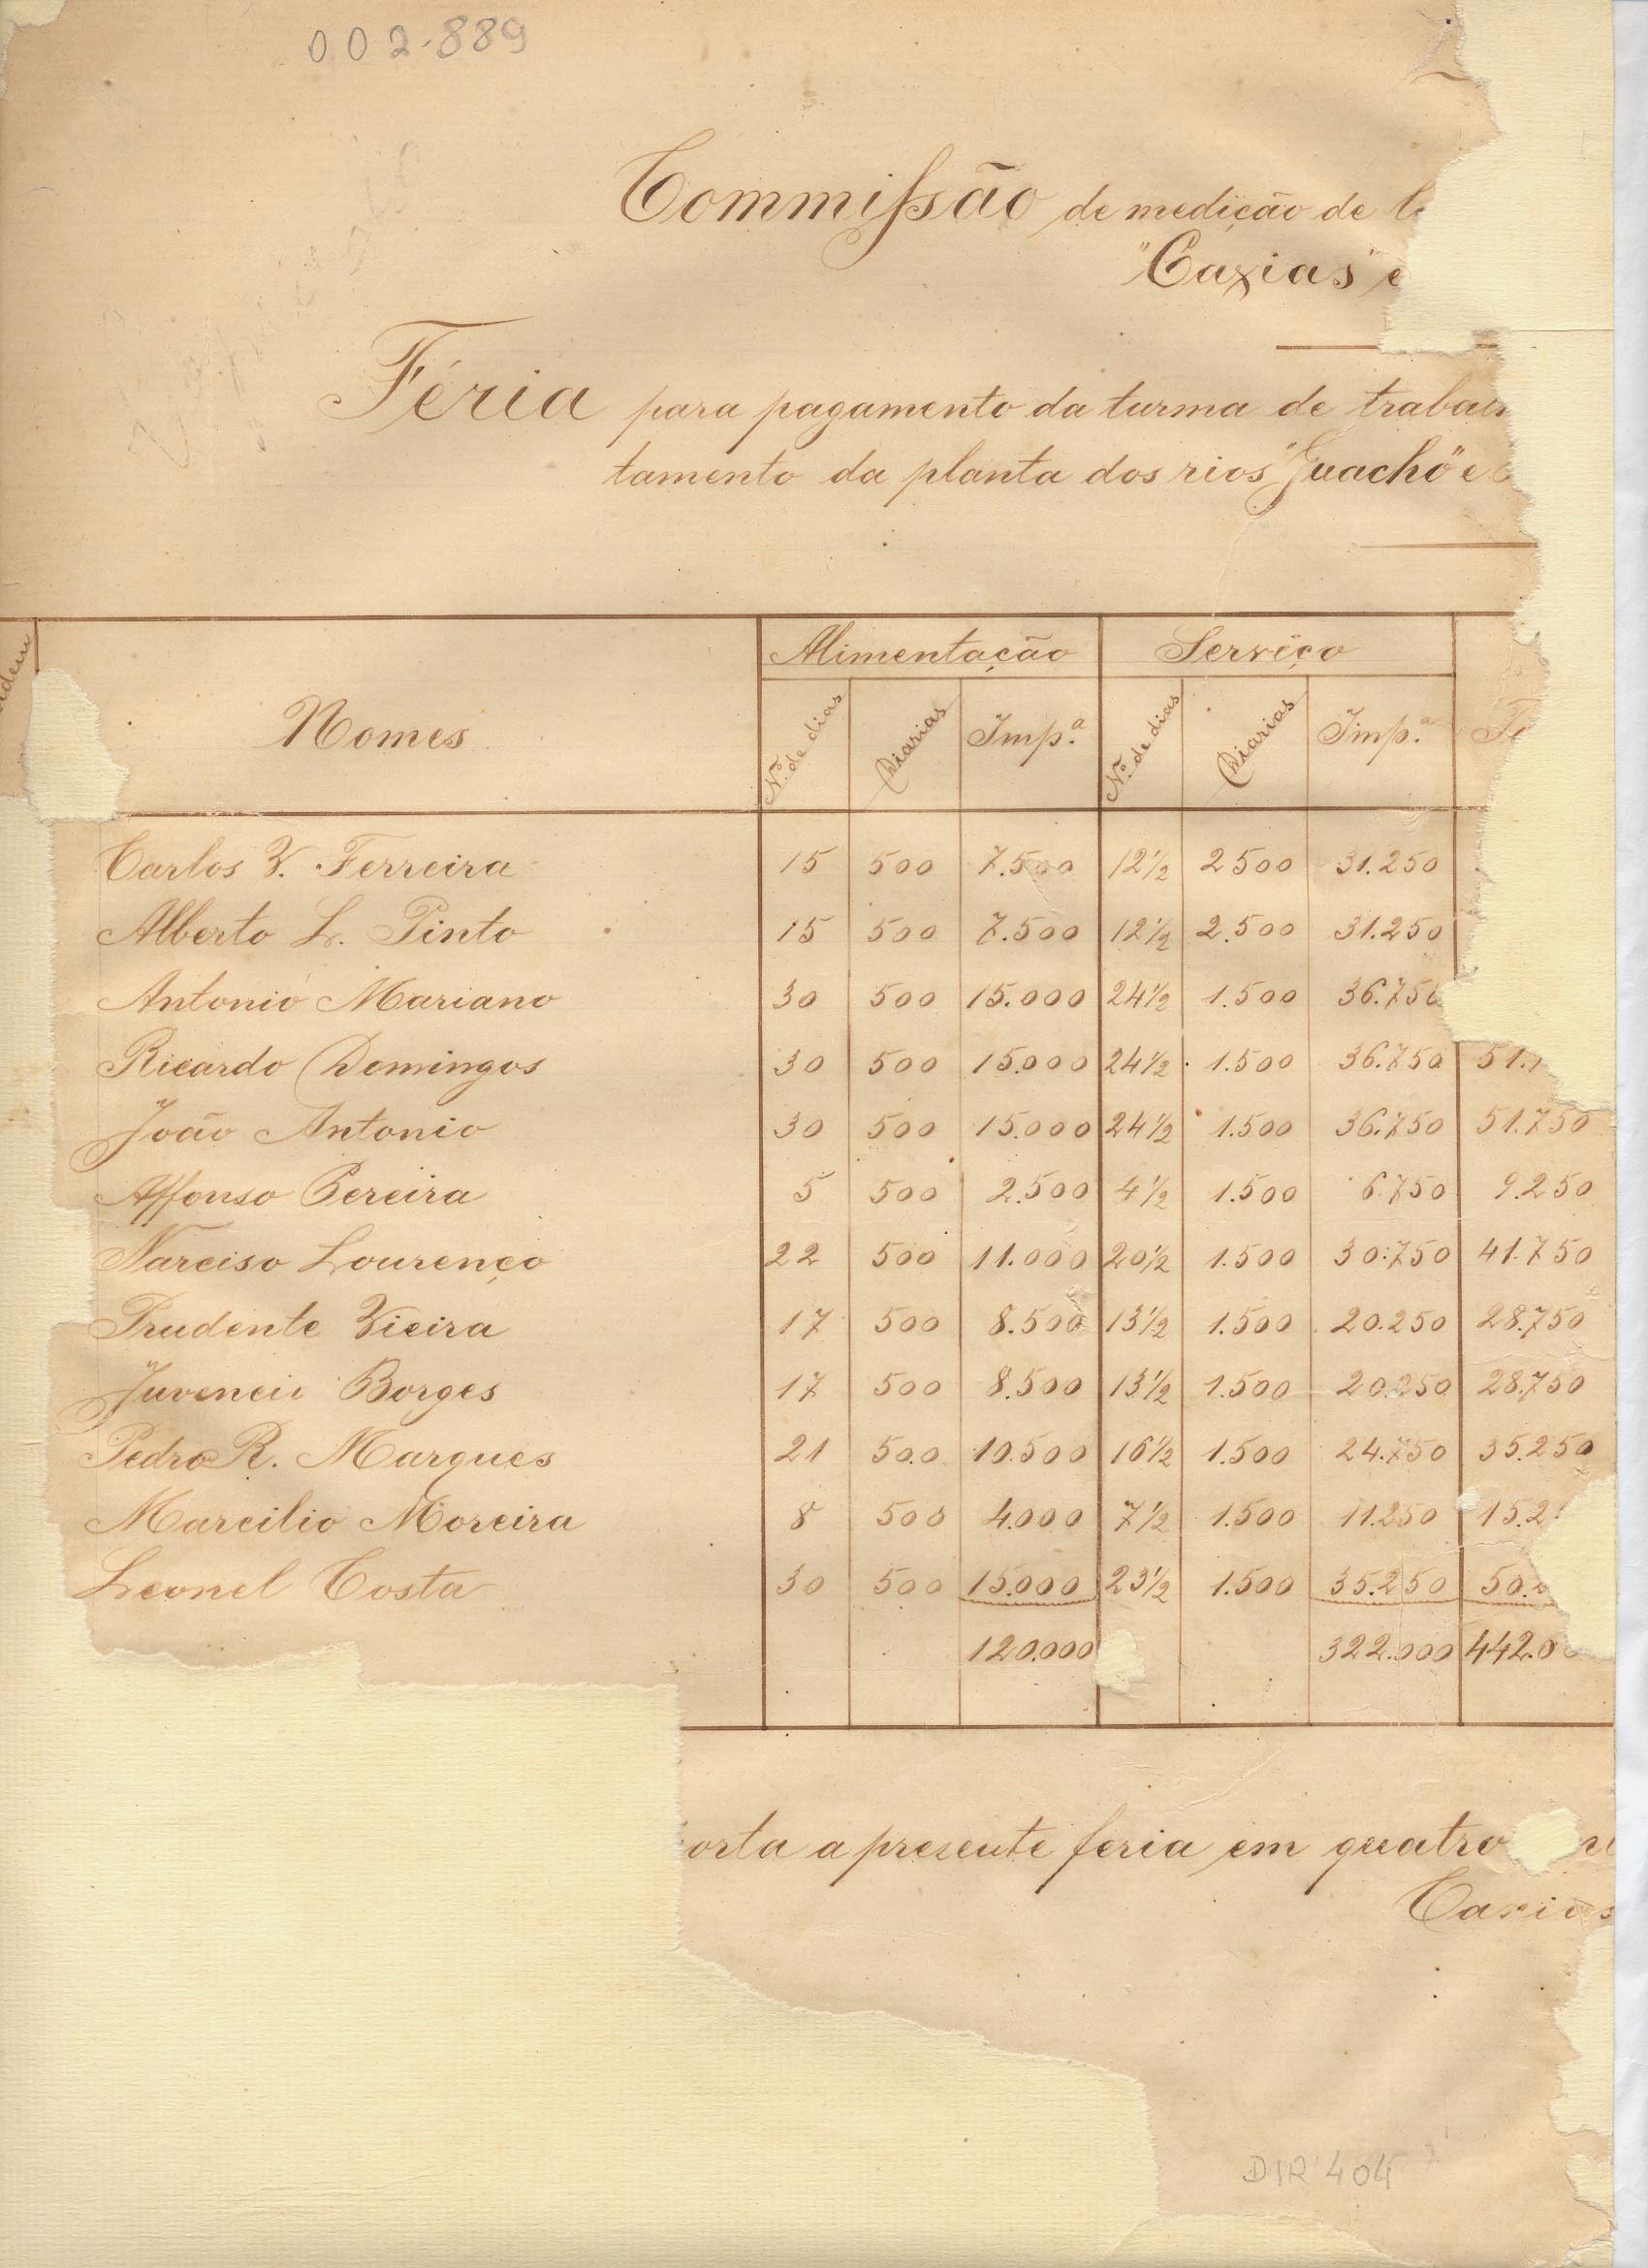 002.889
Commissão de medição de
"Caxias" e
Féria para pagamento da turma de
tamento da planta dos rios "Guachô" e
Nomes
Alimentação Serviço
Nº de dias Diarias Imp.ª Nº de dias Diarias Imp.ª
Carlos V. Ferreira 15 500 7.500 12½ 2500 31.250
Alberto L. Pinto 15 500 7.500 12½ 2.500 31.250
Antonio Mariano 30 500 15.000 24½ 1.500 36.750
Ricardo Domingos 30 500 15.000 24½ 1.500 36.750 51.
João Antonio 30 500 15.000 24½ 1.500 36.750 51.750
Affonso Pereira 5 500 2.500 4½ 1.500 6.750 9.250
Narciso Lourenço 22 500 11.000 20½ 1.500 30.750 41.750
Prudente Vieira 17 500 8.500 13½ 1.500 20.250 28.750
Juvencio Borges 17 500 8.500 13½ 1.500 20.250 28.750
Pedro R. Marques 21 500 10.500 16½ 1.500 24.750 35.250
Marcilio Moreira 8 500 4.000 7½ 1.500 11.250 15.2
Leonel Costa 30 500 15.000 23½ 1.500 35.250 50.
120.000 322.000 442.0
orta a presente feria em quatro
Caxias
DIR 404